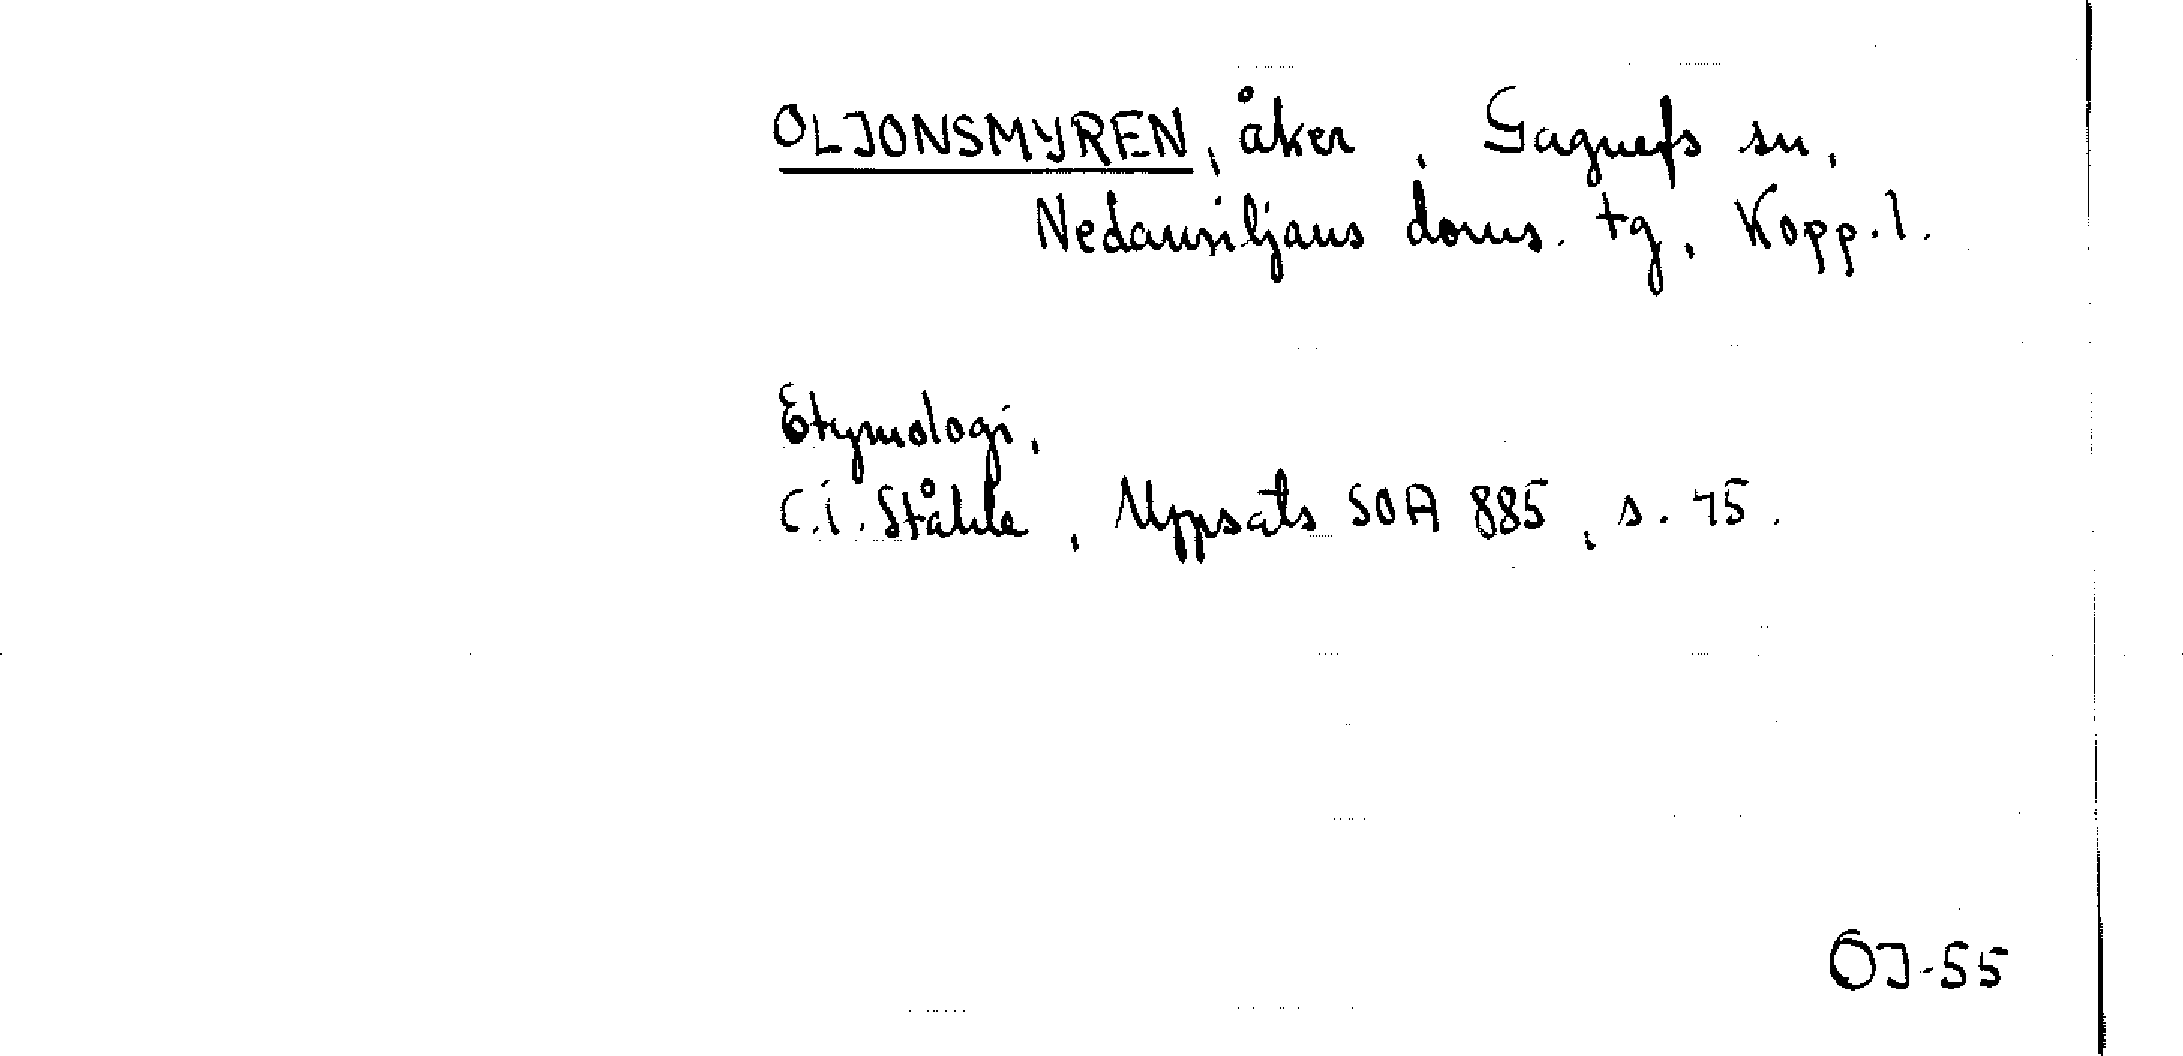 OLJONSMYREN, åker, Gagnefs sn,
Nedansiljans doms. tg, Kopp. l.
Etymologi,
C.I. Ståhle, Uppsats SOA 885, s. 75.
OJ-55